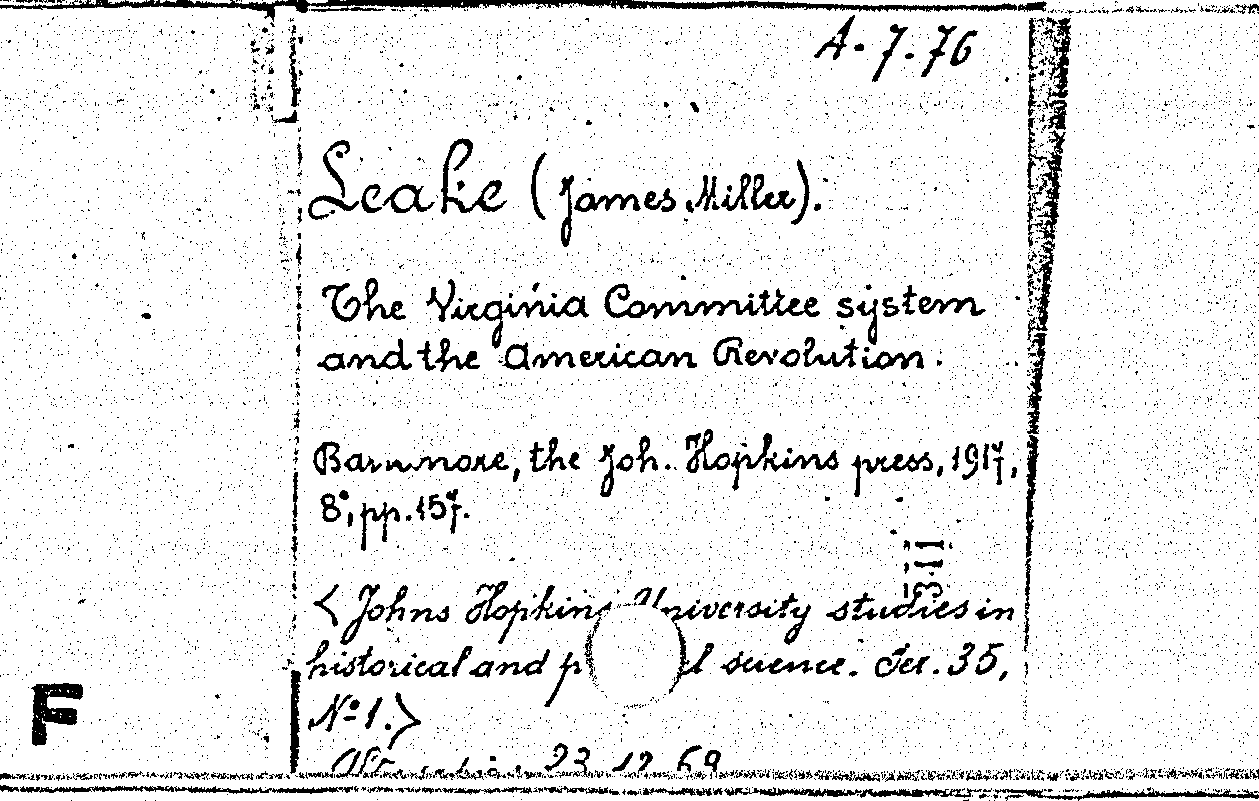 A-7.76
Leake (James Miller).
The Virginia Committee system
and the American Revolution.
the Joh. Hopkins press, 1917,
8°, pp. 157.
311
<Johns Hopkins University studies in
historical and science. Ser. 35,
№ 1.>
F
23 12 69